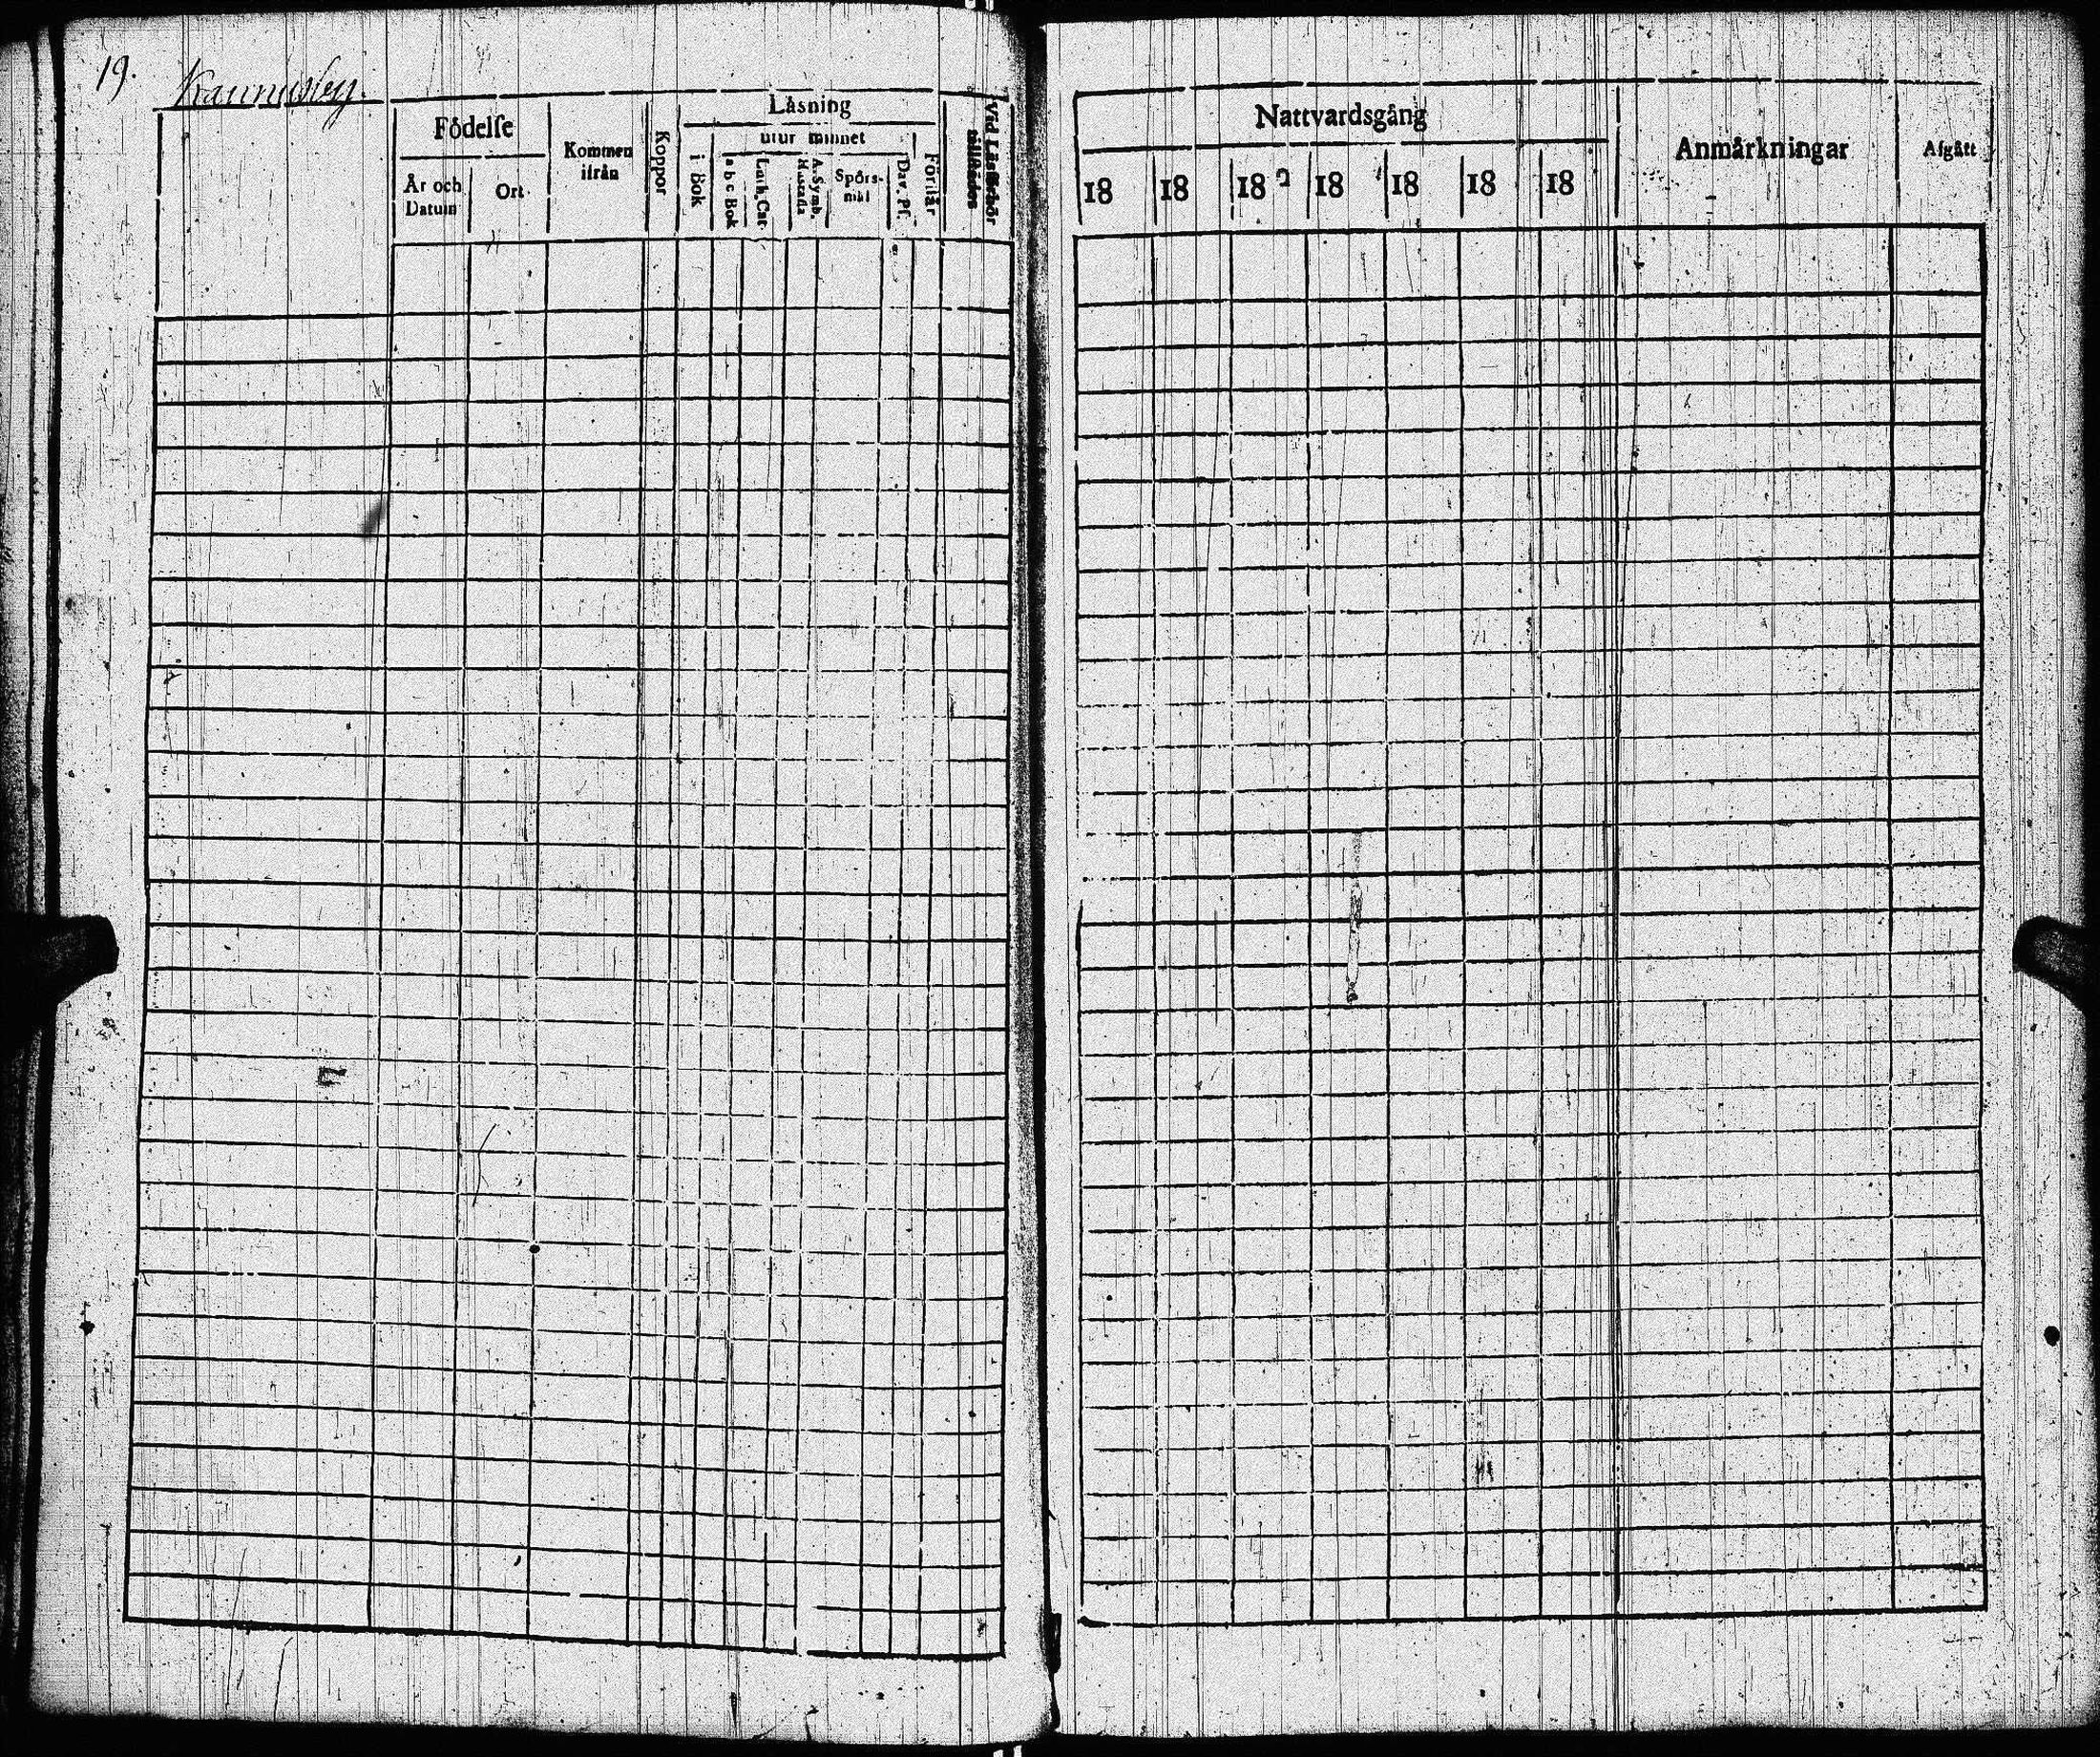 19. Kaunusby.
Födelse
År och Datum
Ort
Kommen ifrån
Koppor
Läsning
i Bok
utur minnet
a b c Bok
Luth. Cat.
A. Symb.
Spörs-mål
Dav. Ps.
Förstår
Vid Läsförhör
Nattvardsgång
18 18 18 18 18 18 18
Anmärkningar
Afgått